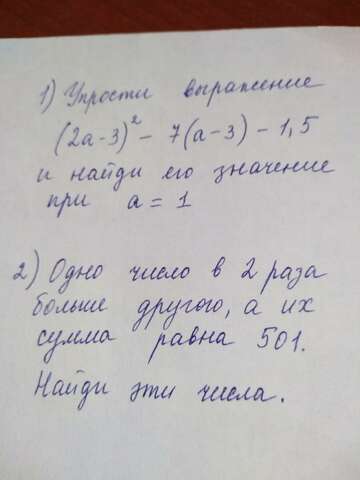 1) Упрости выражение
(2a-3)² - 7(a-3) - 1,5
и найди его значение
при a = 1
2) Одно число в 2 раза
больше другого, а их
сумма равна 501.
Найди эти числа.